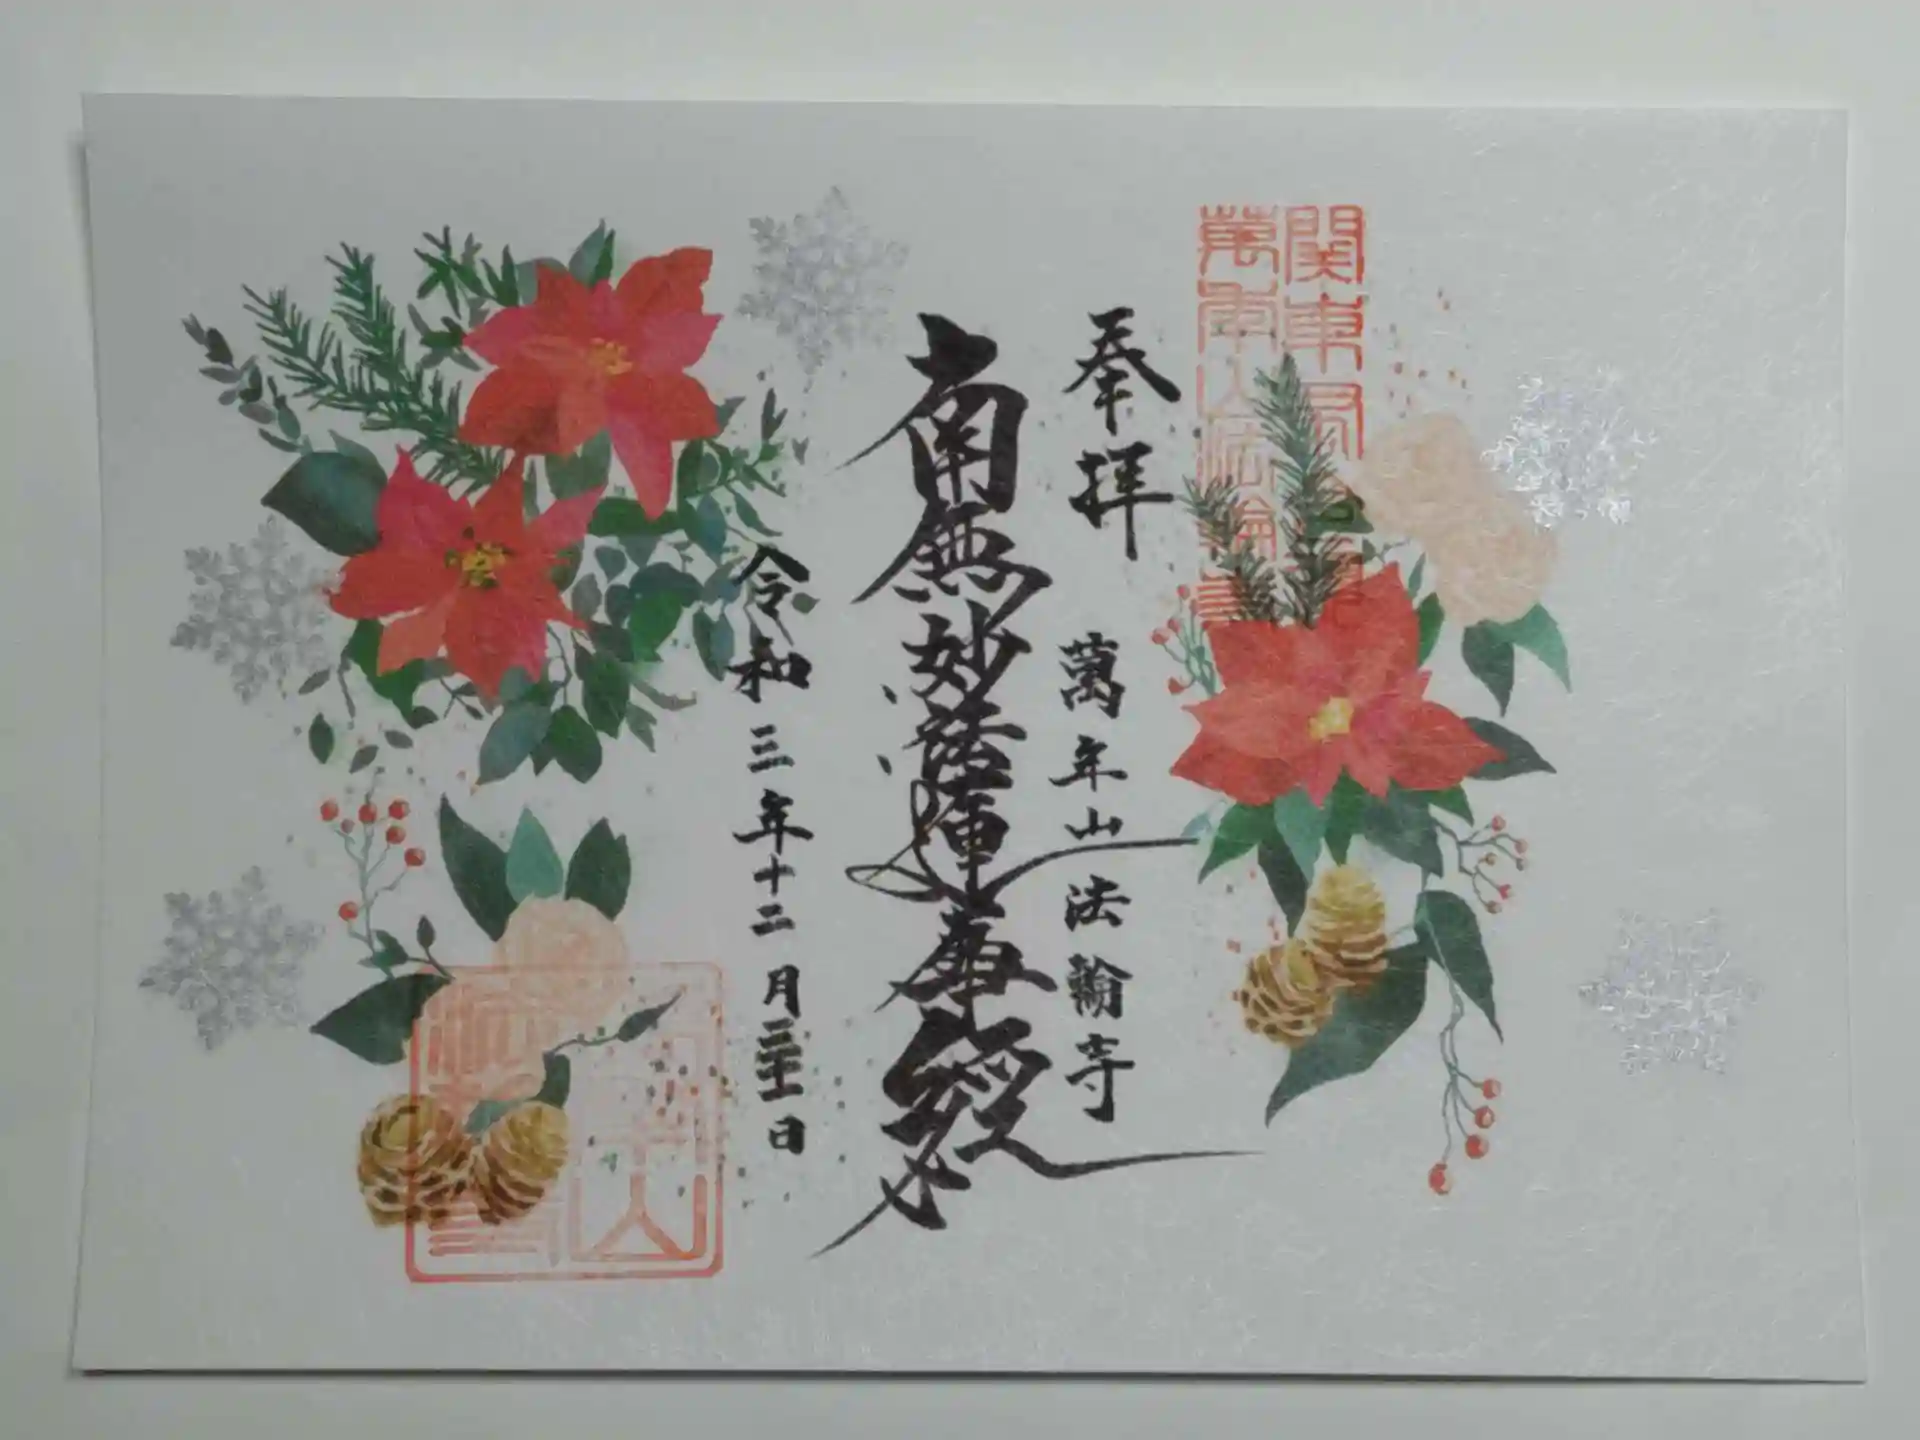 関東
萬年山法輪寺
奉拝
萬年山法輪寺
南無妙法蓮華経
令和三年十二月 日